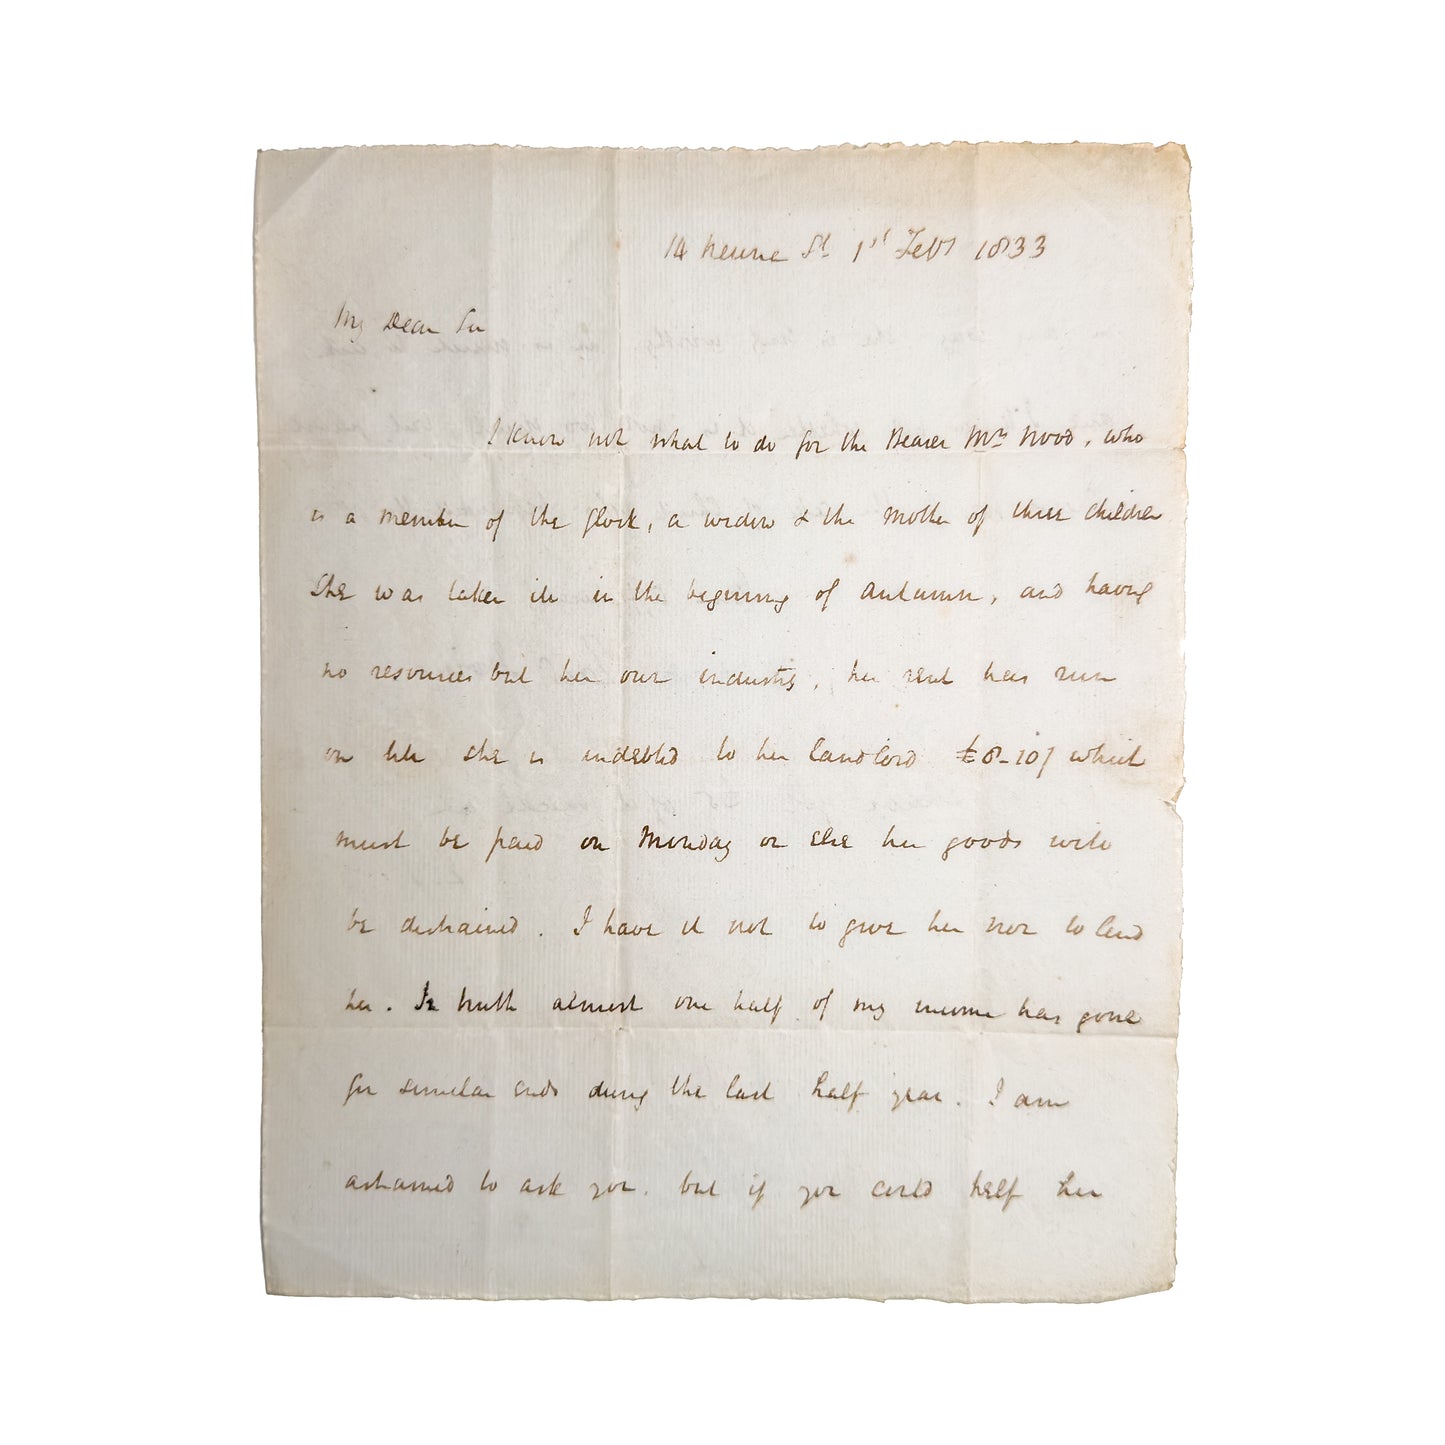 14 Newman St 1st Feby 1833
My Dear Sir
I know not what to do for the Bearer Mrs Wood, who
is a member of the flock, a widow & the mother of three children
She was taken ill in the beginning of autumn, and having
no resources but her own industry, her rent has run
on till she is indebted to her landlord £8-10/ which
must be paid on Monday or else her goods will
be distrained. I have it not to give her nor to lend
her. In truth almost one half of my income has gone
for similar ends during the last half year. I am
ashamed to ask you. but if you could help her